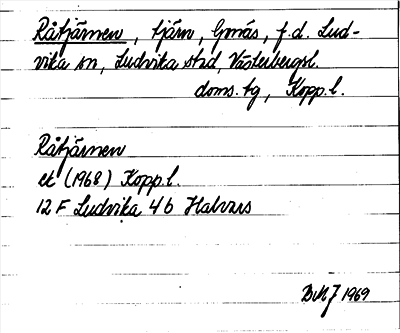 Råtjärnen, tjärn, Gonäs, f.d. Lud-
vika sn, Ludvika stad, Västerbergsl.
doms.tg, Kopp.l.
Råtjärnen
ek (1968) Kopp.l.
12 F Ludvika 4 b Halvars
1969